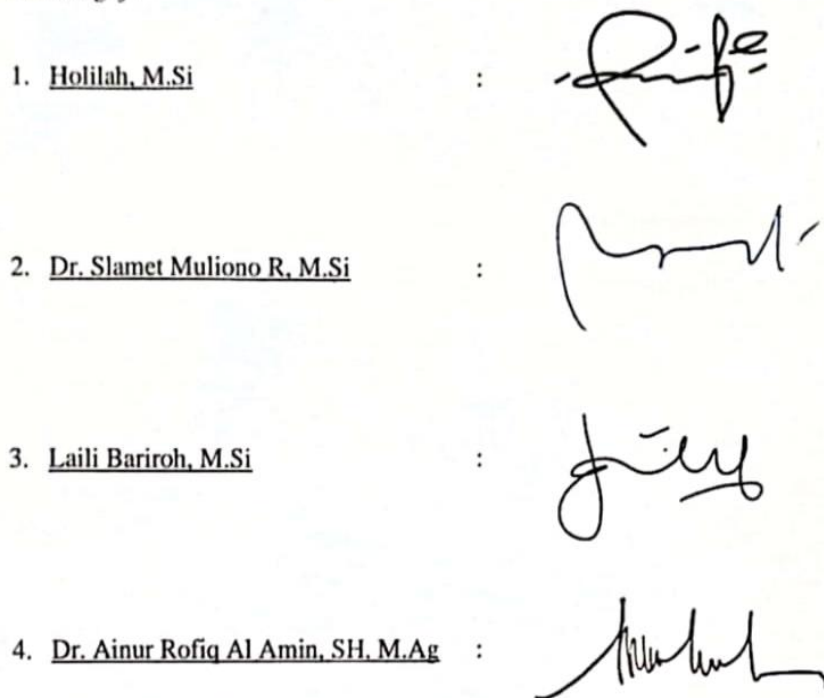 1. Holilah, M.Si :
2. Dr. Slamet Muliono R, M.Si :
3. Laili Bariroh, M.Si :
4. Dr. Ainur Rofiq Al Amin, SH, M.Ag :